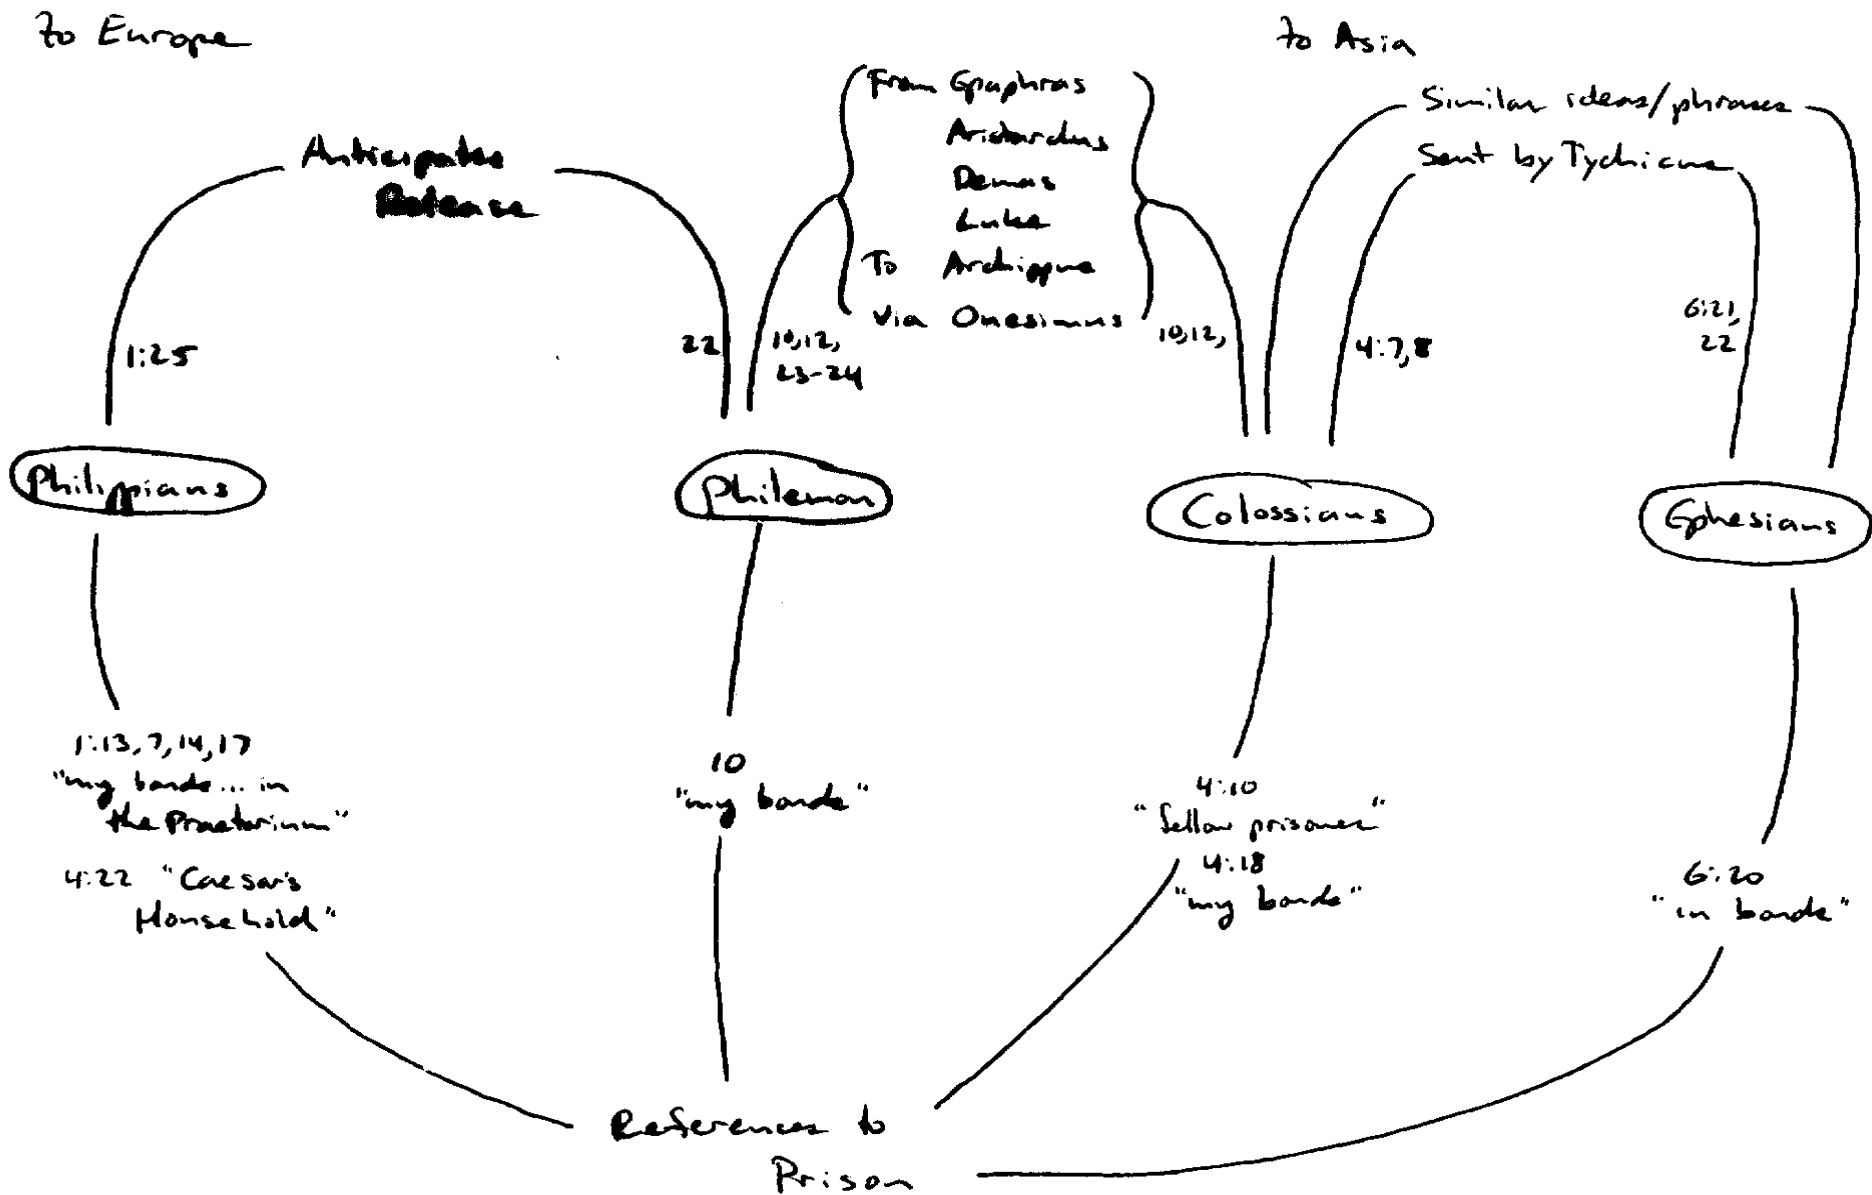 to Europe
to Asia
From Epaphras
Aristarchus
Demas
Luke
To Archippus
Via Onesimus
Similar ideas/phrases
Sent by Tychicus
Anticipates
Release
1:25
22
10,12,
23-24
10,12,
4:7,8
6:21,
22
Philippians
Philemon
Colossians
Ephesians
1:13,7,14,17
"my bonds... in
the Praetorium"
4:22 "Caesar's
Household"
10
"my bonds"
4:10
"fellow prisoner"
4:18
"my bonds"
6:20
"in bonds"
References to
Prison